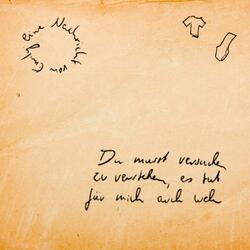 eine Nachricht von
Du musst versuchen
zu verstehen, es tut
für mich auch weh